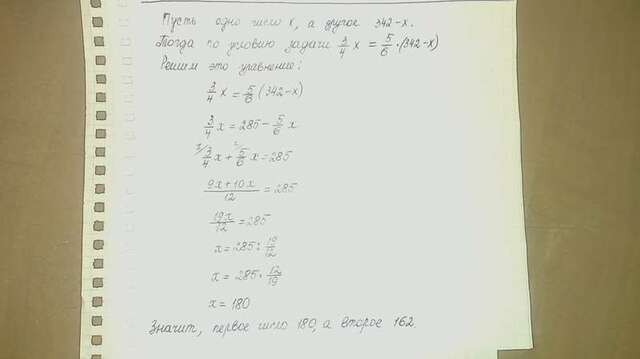 Пусть одно число x, а другое 342-x.
Тогда по условию задачи 3/4 x = 5/6 · (342-x)
Решим это уравнение:
3/4 x = 5/6 (342-x)
3/4 x = 285 - 5/6 x
3/ 3/4 x + 2/ 5/6 x = 285
(9x+10x)/12 = 285
19x/12 = 285
x = 285 : 19/12
x = 285 · 12/19
x = 180
Значит, первое число 180, а второе 162